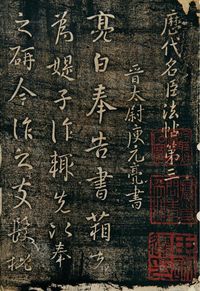 歷代名臣法帖第三
晉太尉庾元亮書
亮白奉告書箱
為媞子作輙先以奉
之研令作之支